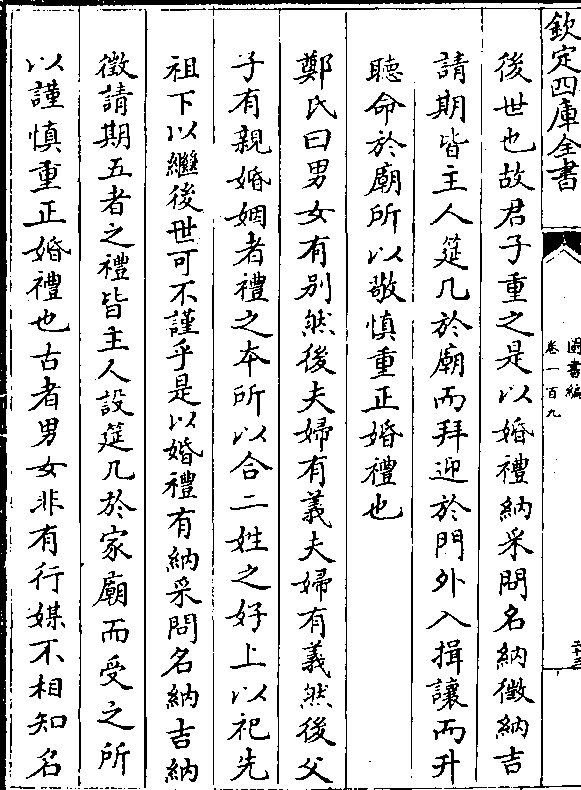 欽定四庫全書
圖書編
卷一百九
後世也故君子重之是以婚禮納采問名納徵納吉
請期皆主人筵几於廟而拜迎於門外入揖讓而升
聽命於廟所以敬慎重正婚禮也
鄭氏曰男女有别然後夫婦有義夫婦有義然後父
子有親婚姻者禮之本所以合二姓之好上以祀先
祖下以繼後世可不謹乎是以婚禮有納采問名納吉納
徵請期五者之禮皆主人設筵几於家廟而受之所
以謹慎重正婚禮也古者男女非有行媒不相知名